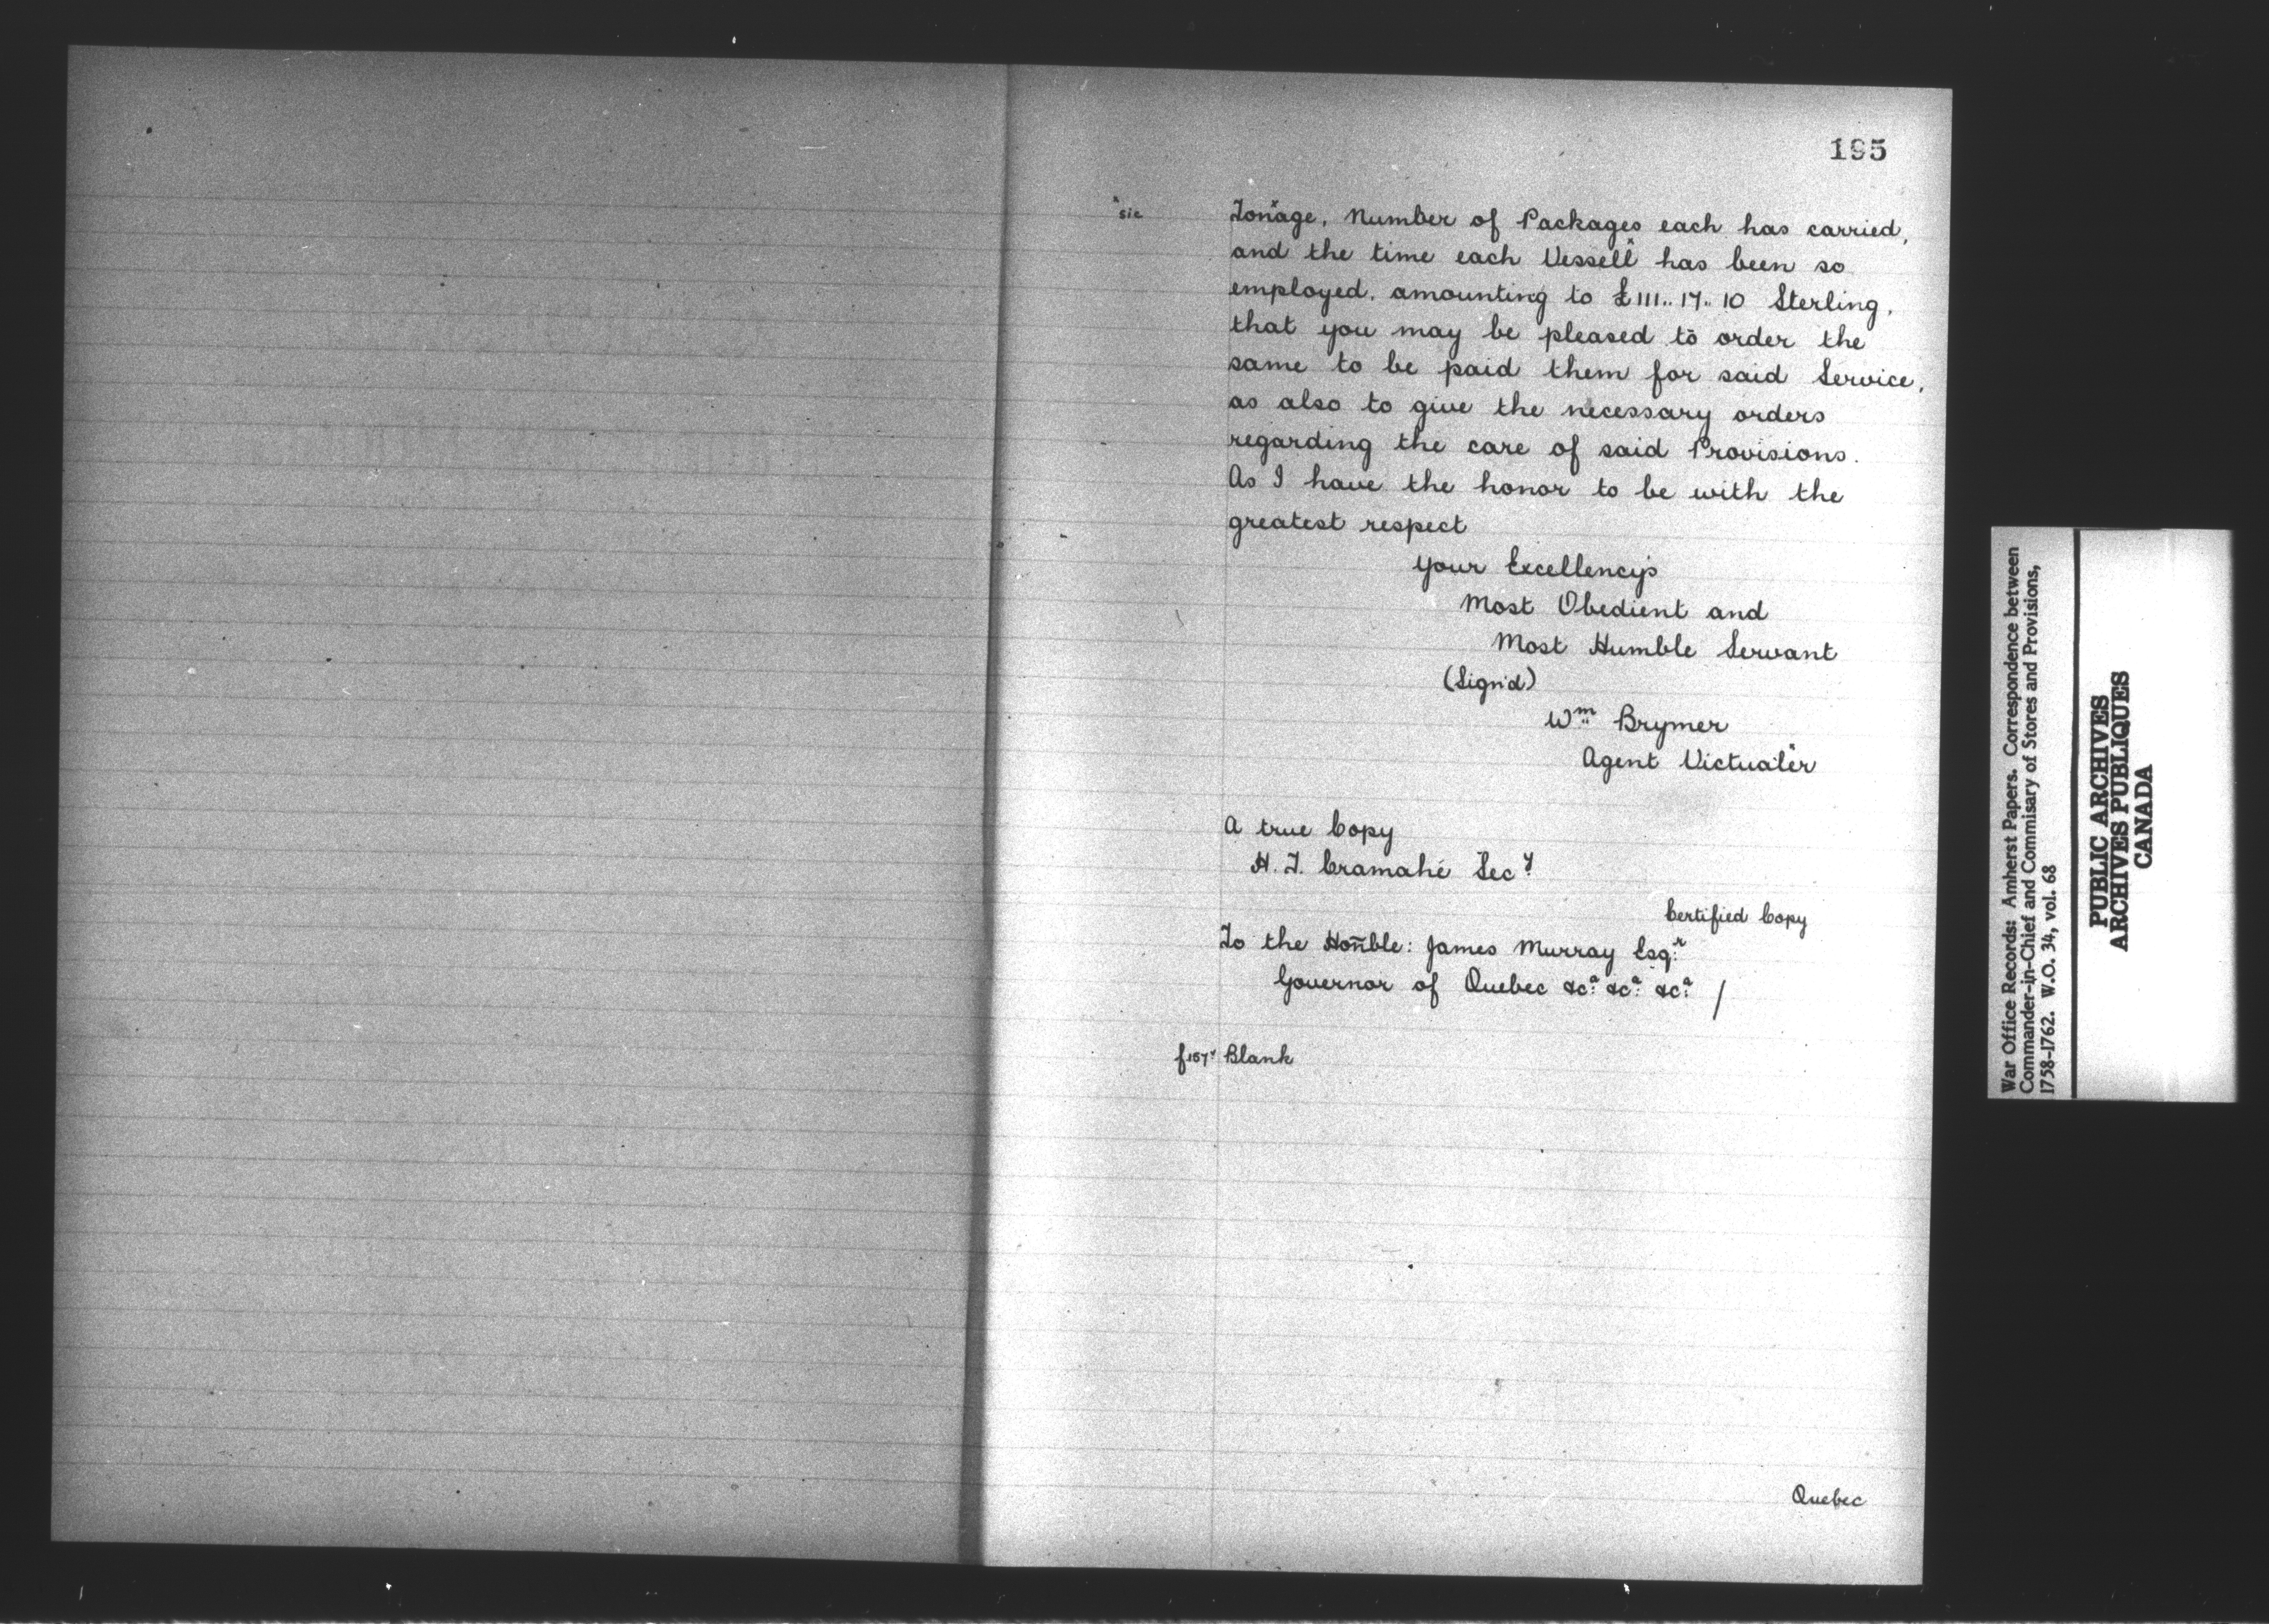 195
ˣsic
Tonˣage, Number of Packages each has carried,
and the time each Vessellˣ has been so
employed, amounting to £111..17..10 Sterling,
that you may be pleased to order the
same to be paid them for said Service,
as also to give the necessary orders
regarding the care of said Provisions.
As I have the honor to be with the
greatest respect
Your Excellency's
Most Obedient and
Most Humble Servant
(Sign'd)
Wᵐ Brymer
Agent Victualˣer
A true Copy
H. T. Cramahé Secʸ
Certified Copy
To the Hon̄ble: James Murray Esq:ʳ
Governor of Quebec &c:ᵃ &c:ᵃ &c:ᵃ /
f157ᵛ Blank
Quebec
War Office Records: Amherst Papers. Correspondence between
Commander-in-Chief and Commisary of Stores and Provisions,
1758-1762. W.O. 34, vol. 68
PUBLIC ARCHIVES
ARCHIVES PUBLIQUES
CANADA